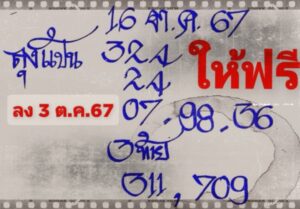 16 ต.ค. 67
ลุงแป้น 324
24
ให้ฟรี
ลง 3 ต.ค.67
07-98-36
3 ท้าย
311, 709